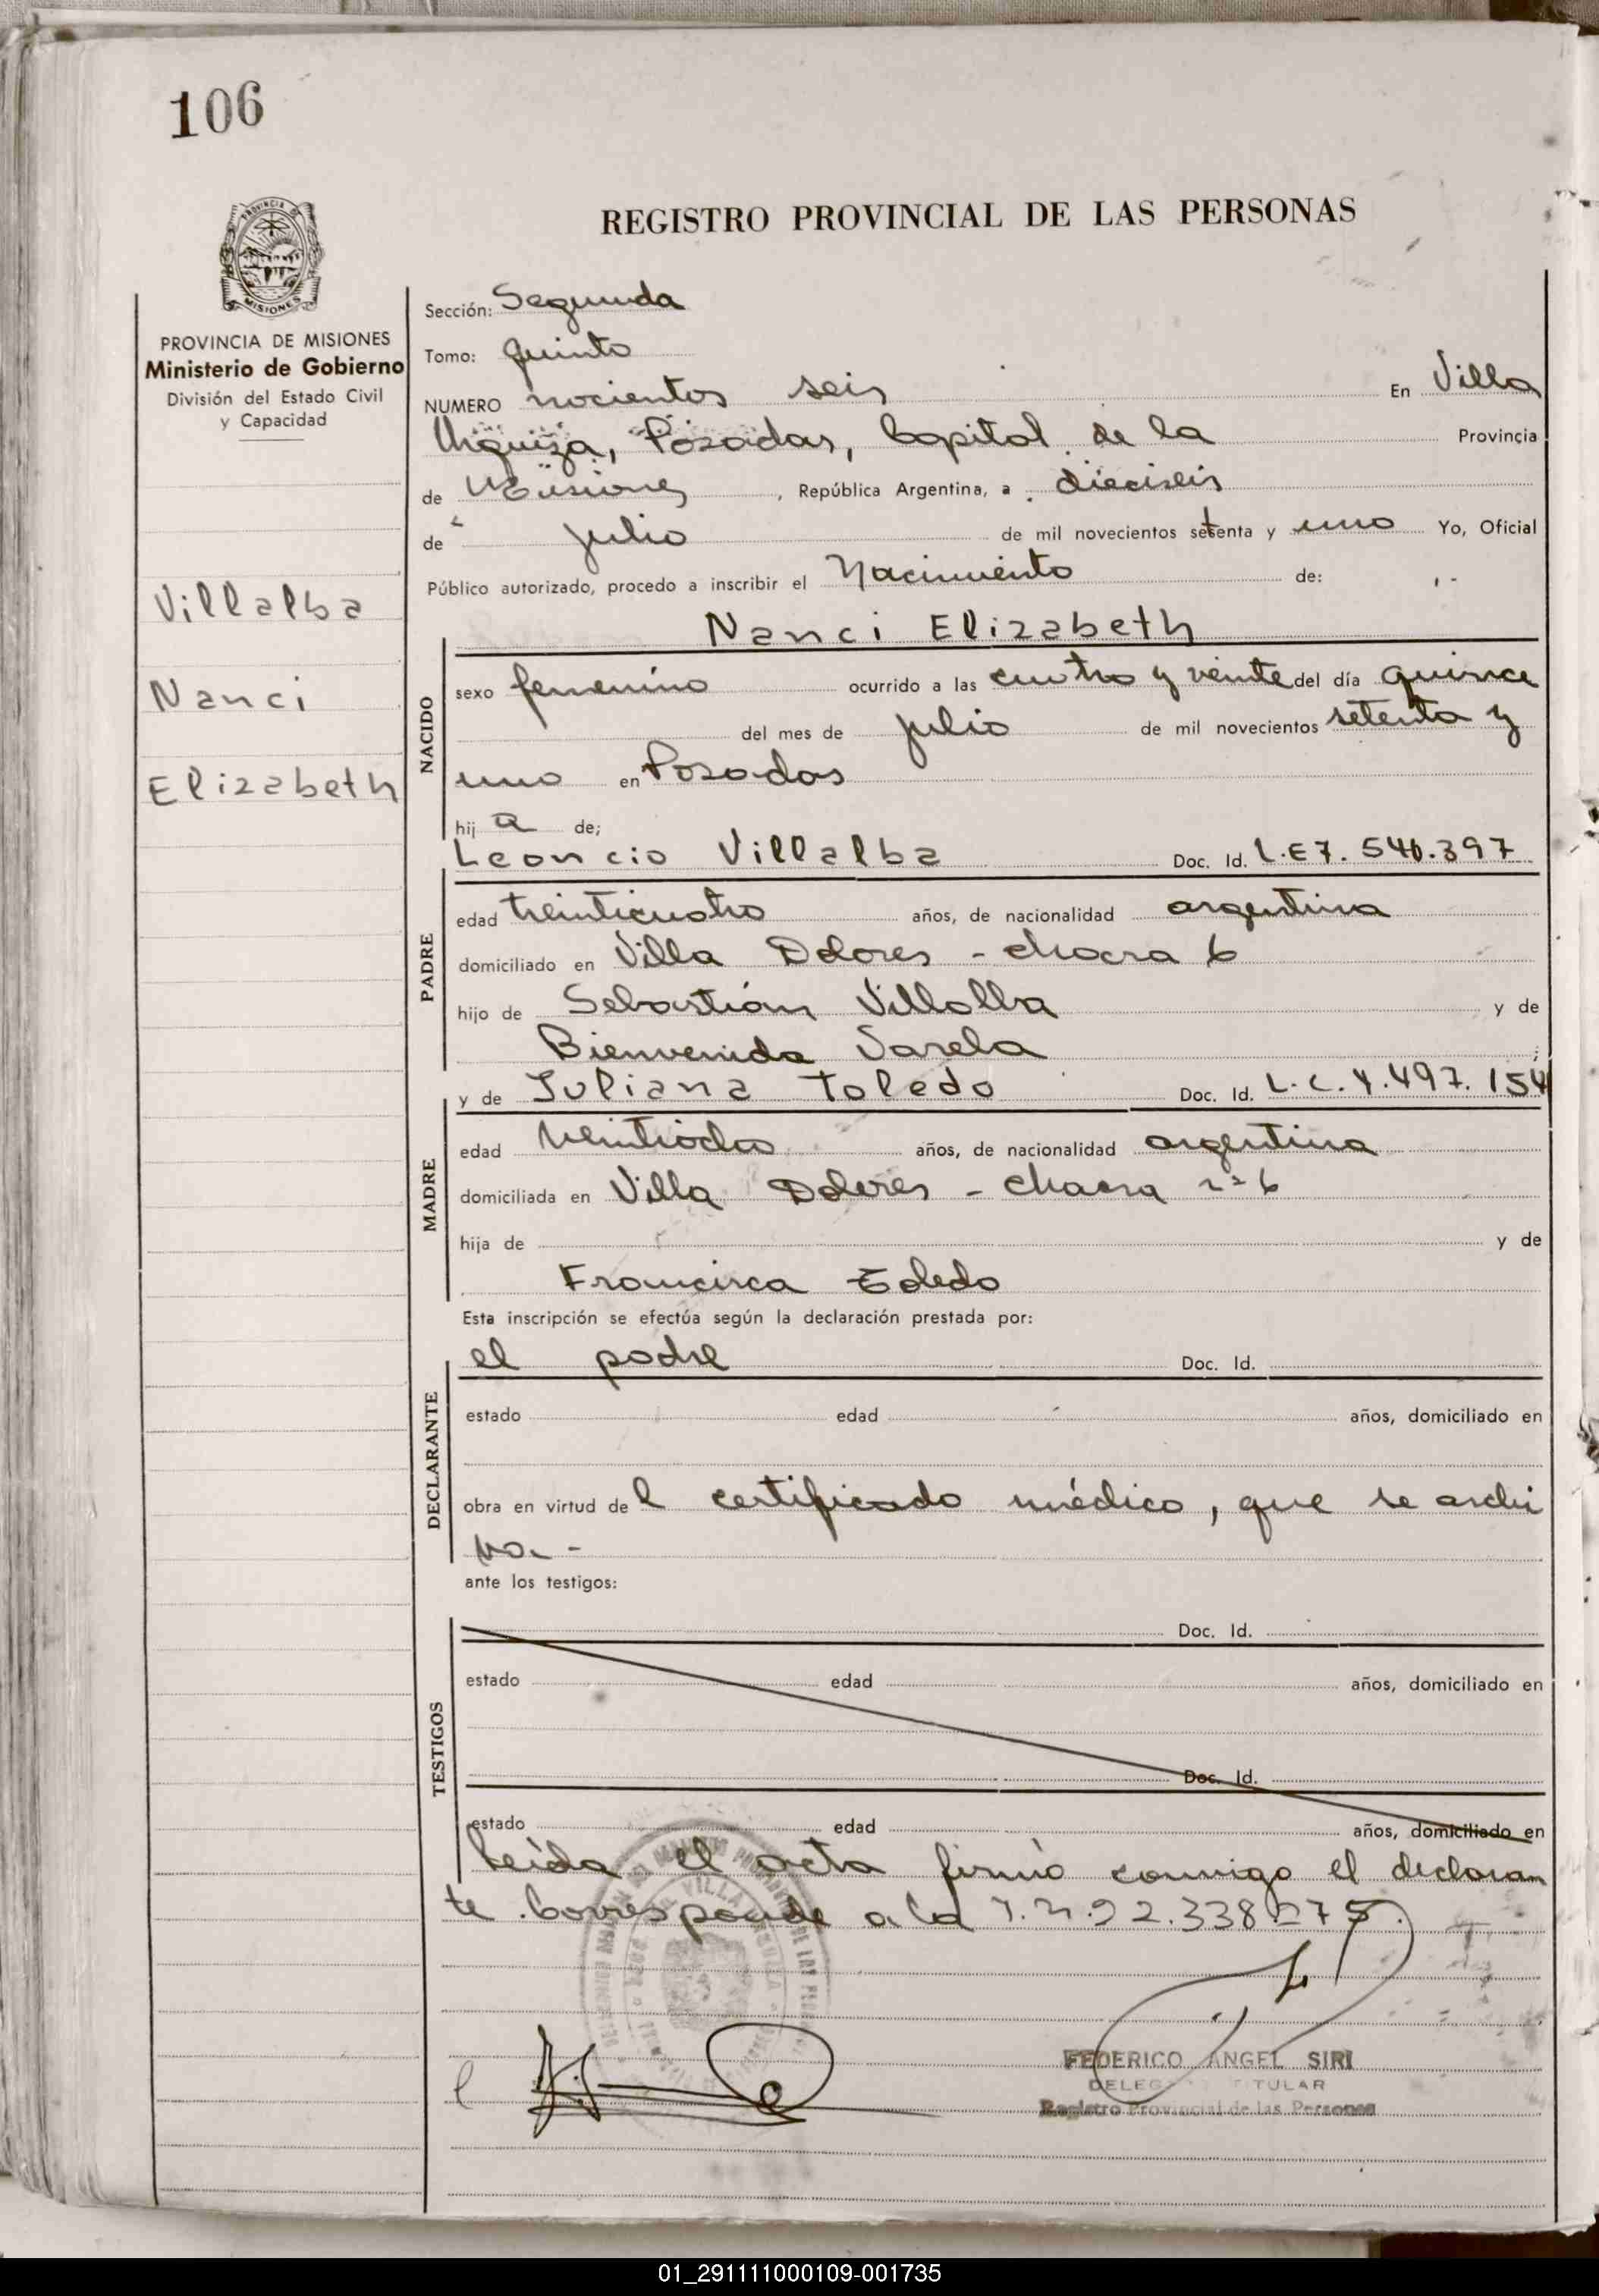 106
REGISTRO PROVINCIAL DE LAS PERSONAS
PROVINCIA DE
MISIONES
PROVINCIA DE MISIONES
Ministerio de Gobierno
División del Estado Civil
y Capacidad
Villalba
Nanci
Elizabeth
Sección: Segunda
Tomo: quinto
NUMERO seis En Villa
Urquiza, Posadas, Capital de la Provincia
de Misiones, República Argentina, a dieciseis
de julio de mil novecientos setenta y uno Yo, Oficial
Público autorizado, procedo a inscribir el Nacimiento de:
Nanci Elizabeth
NACIDO
sexo femenino ocurrido a las cuatro y veinte del día quince
del mes de julio de mil novecientos setenta y
uno en Posadas
hij a de;
Leoncio Villalba Doc. Id. L.E 7.546.397
PADRE
edad treinticuatro años, de nacionalidad argentina
domiciliado en Villa Dolores - chacra 6
hijo de Sebastián Villalba y de
Bienvenida Varela ;
y de Juliana Toledo Doc. Id. L.C. 4.497.154
MADRE
edad veintiocho años, de nacionalidad argentina
domiciliada en Villa Dolores - chacra nº 6
hija de y de
Francisca Toledo
Esta inscripción se efectúa según la declaración prestada por:
el padre Doc. Id.
DECLARANTE
estado edad años, domiciliado en
obra en virtud de l certificado médico, que se archi
va.-
ante los testigos:
Doc. Id.
TESTIGOS
estado edad años, domiciliado en
Doc. Id.
estado edad años, domiciliado en
Leída el acta firmó conmigo el declaran
te. Corresponde a la
FEDERICO ANGEL SIRI
TITULAR
Registro Provincial de las Personas
01_291111000109-001735